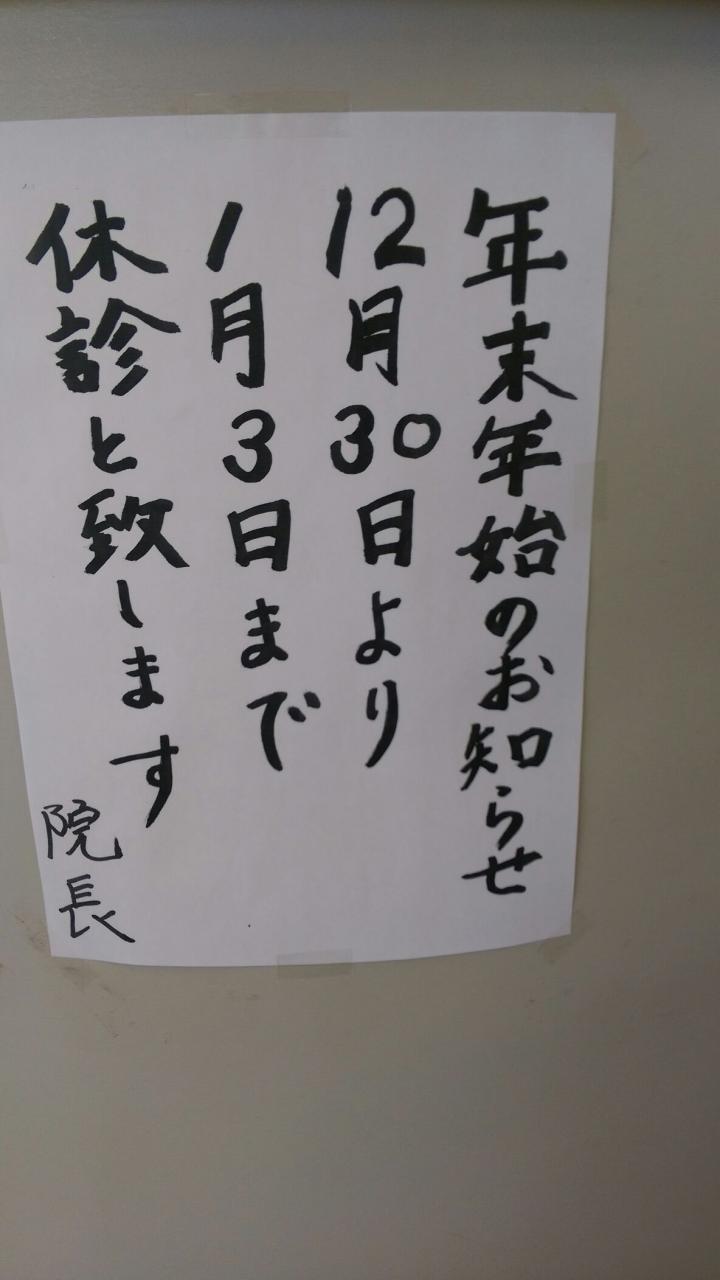 年末年始のお知らせ
12月30日より
1月3日まで
休診と致します
院長